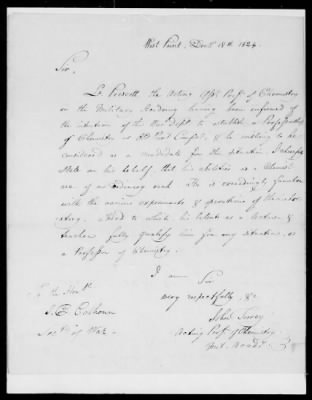 West Point, Decr 18th 1824.
Sir,
Lt Prescott the Acting Asst Prof. of Chemistry
in the Military Academy having been informed of
the intention of the War Dept. to establish a Professorship
of Chemistry at West Point, & he wishing to be
considered as a candidate for the situation, I
state on his behalf, that his abilities as a Chemist
are of
with the various experiments & operations of the
Added to which, his talents as a lecturer &
teacher fully qualify him for any situation, as
a Professor of Chemistry.
I am Sir
very respectfully, &c.
John Torrey
Acting Prof. of Chemistry
To the Honble
J. C. Calhoun
Secy of War